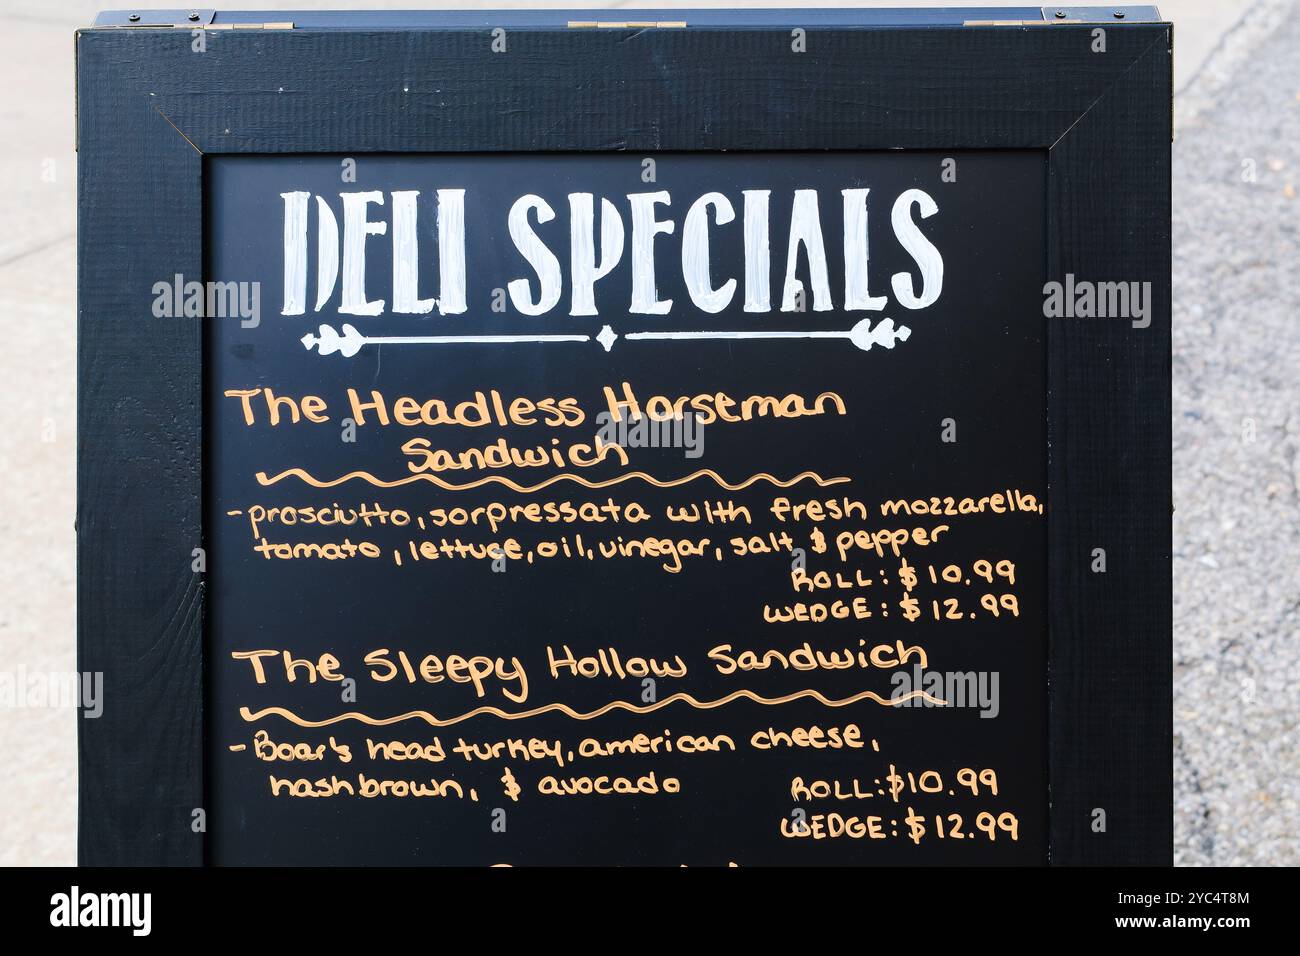 DELI SPECIALS
The Headless Horseman
Sandwich
-prosciutto, sorpressata with fresh mozzarella,
tomato, lettuce, oil, vinegar, salt & pepper
ROLL: $10.99
WEDGE: $12.99
The Sleepy Hollow Sandwich
-Boar's head turkey, american cheese,
hashbrown, & avocado
ROLL: $10.99
WEDGE: $12.99
alamy
Image ID: 2YC4T8M
www.alamy.com